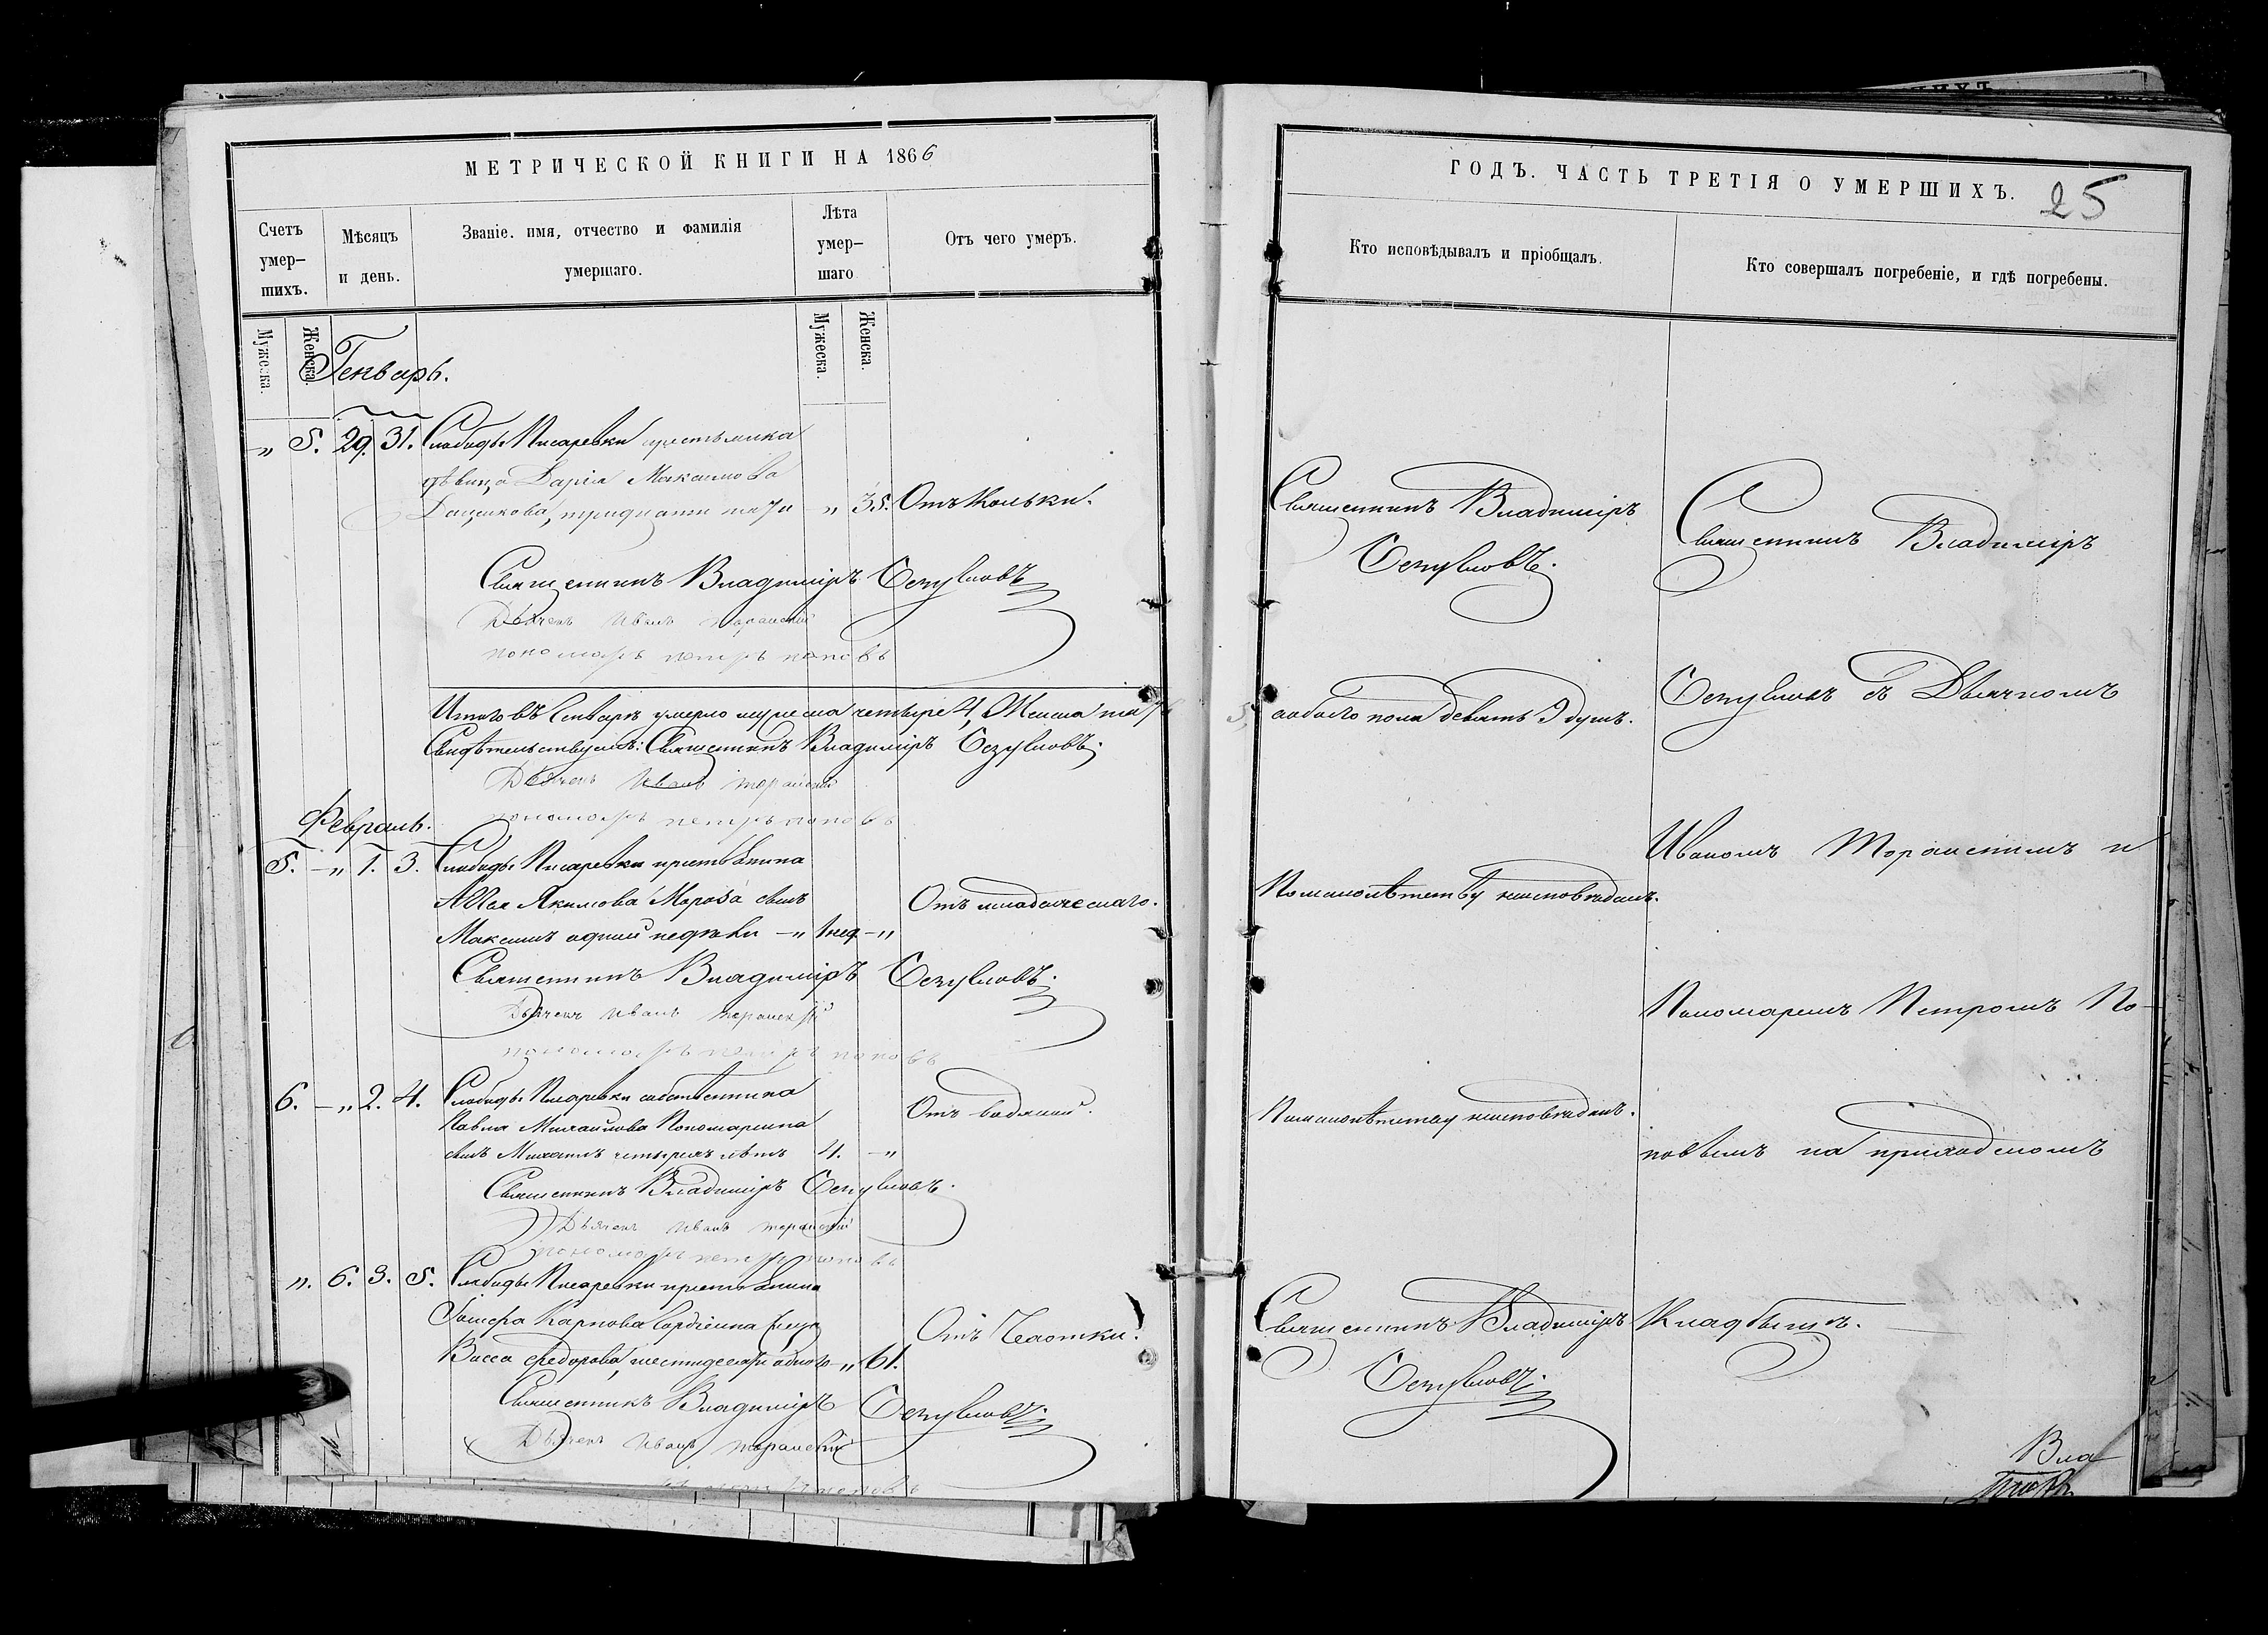 МЕТРИЧЕСКОЙ КНИГИ НА 1866
Счетъ умер- шихъ.
Мѣсяцъ и день.
Званіе. имя, отчество и фамилія умершаго.
Лѣта умер- шаго
Отъ чего умеръ.
Мужеска.
Женска.
Мужеска.
Женска.
Генварь.
" 5. 29. 31. Слободы Писаревки крестьянка
дѣвица Дарія Максимова
тридцати пяти " 35. Отъ Кольки.
Священникъ Владиміръ
Дьячекъ Иванъ
пономарь петръ поповъ
Итого въ Генварѣ умерло мужеска четыре 4, Женска пять
Свидѣтельствуемъ: Священникъ Владиміръ
Дьячекъ Иванъ
пономарь петръ поповъ
Февраль.
5. — " 1. 3. Слободы Писаревки крестьянина
Якимова Мороза сынъ
Отъ младенческаго.
Максимъ одной недѣли — " 1 нед — "
Священникъ Владиміръ
Дьячекъ Иванъ
пономарь петръ поповъ
6. — " 2. 4. Слободы Писаревки собственника
Отъ водяной.
Павла Михайлова Пономаренка
сынъ Михаилъ четырехъ лѣтъ 4. — "
Священникъ Владиміръ
Дьячекъ Иванъ
пономарь петръ поповъ
". 6. 3. 5. Слободы Писаревки крестьянина
Іосифа Карпова Гордіенка жена
Отъ Чахотки.
Васса Федорова, шестидесяти одного " 61.
Священникъ Владиміръ
Дьячекъ Иванъ
поповъ
ГОДЪ. ЧАСТЬ ТРЕТІЯ О УМЕРШИХЪ. 25
Кто исповѣдывалъ и пріобщалъ.
Кто совершалъ погребеніе, и гдѣ погребены.
Священникъ Владиміръ
5, а обоего пола девять 9 душъ.
По малолѣтству неисповѣданъ.
По малолѣтству неисповѣданъ.
Священникъ Владиміръ
Священникъ Владиміръ
съ Дьячкомъ
Иваномъ и
Пономаремъ Петромъ По-
повымъ на приходскомъ
Кладбищѣ.
Вла